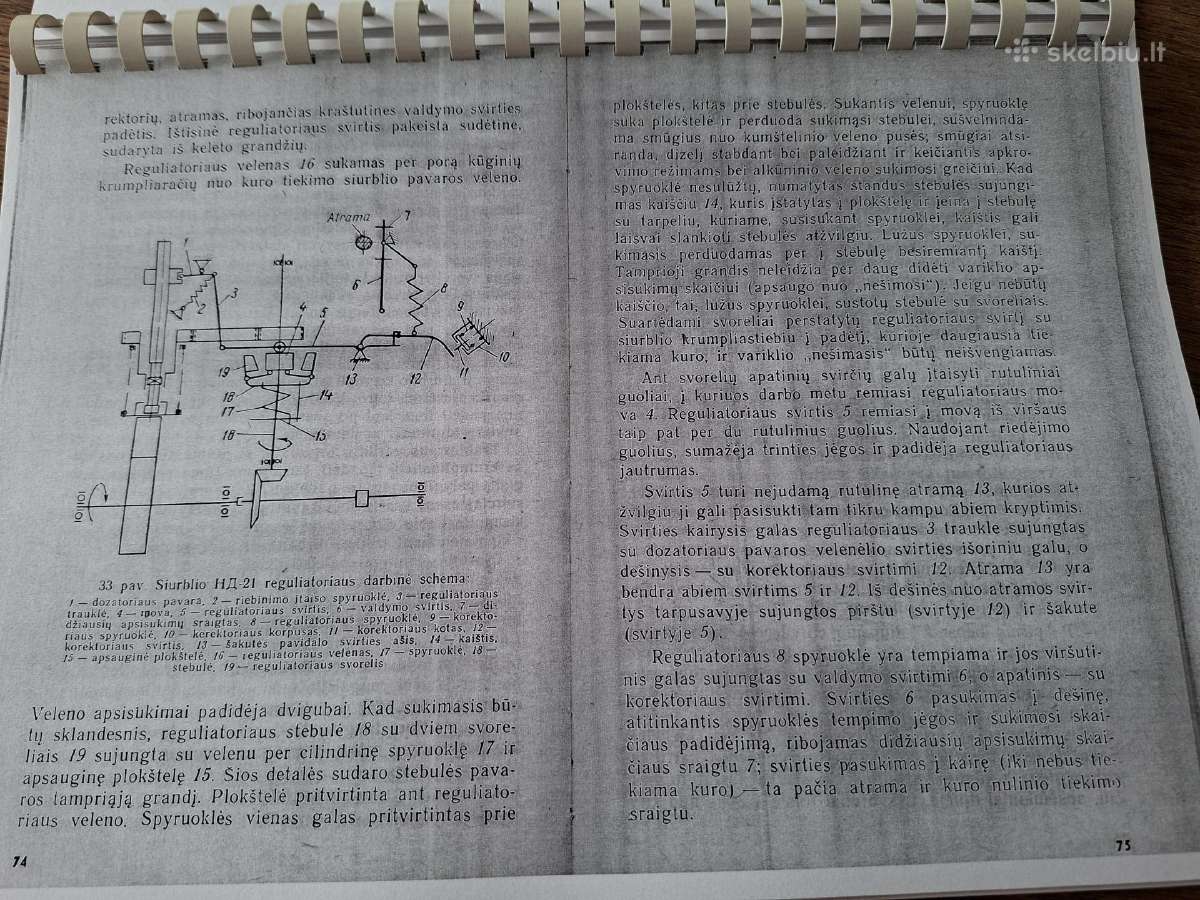 skelbiu.lt
rektorių, atramas, ribojančias kraštutines valdymo svirties
padėtis. Ištisinė reguliatoriaus svirtis pakeista sudėtine,
sudaryta iš keleto grandžių.
Reguliatoriaus velenas 16 sukamas per porą kūginių
krumpliaračių nuo kuro tiekimo siurblio pavaros veleno.
Atrama
7
1
6
2
3
8
9
4
5
10
11
12
13
19
18
14
17
15
16
33 pav Siurblio НД-21 reguliatoriaus darbinė schema:
1 — dozatoriaus pavara, 2 — riebinimo įtaiso spyruoklė, 3 — reguliatoriaus
trauklė, 4 — mova, 5 — reguliatoriaus svirtis, 6 — valdymo svirtis, 7 — di-
džiausių apsisukimų sraigtas, 8 — reguliatoriaus spyruoklė, 9 — korekto-
riaus spyruoklė, 10 — kerektoriaus korpusas, 11 — korektoriaus kotas, 12 —
korektoriaus svirtis, 13 — šakutės pavidalo svirties ašis, 14 — kaištis,
15 — apsauginė plokštelė, 16 — reguliatoriaus velenas, 17 — spyruoklė, 18 —
stebulė, 19 — reguliatoriaus svorelis
Veleno apsisukimai padidėja dvigubai. Kad sukimasis bū-
tų sklandesnis, reguliatoriaus stebulė 18 su dviem svore-
liais 19 sujungta su velenu per cilindrinę spyruoklę 17 ir
apsauginę plokštelę 15. Šios detalės sudaro stebulės pava-
ros tampriąją grandį. Plokštelė pritvirtinta ant reguliato-
riaus veleno. Spyruoklės vienas galas pritvirtintas prie
74
plokštelės, kitas prie stebulės. Sukantis velenui, spyruoklė
suka plokštelę ir perduoda sukimąsi stebulei, sušvelninda-
ma smūgius nuo kumštelinio veleno pusės; smūgiai atsi-
randa, dizelį stabdant bei paleidžiant ir keičiantis apkro-
vimo režimams bei alkūninio veleno sukimosi greičiui. Kad
spyruoklė nesulūžtų, numatytas standus stebulės sujungi-
mas kaiščiu 14, kuris įstatytas į plokštelę ir įeina į stebulę
su tarpeliu, kuriame, susisukant spyruoklei, kaištis gali
laisvai slankioti stebulės atžvilgiu. Lūžus spyruoklei, su-
kimasis perduodamas per į stebulę besiremiantį kaištį.
Tamprioji grandis neleidžia per daug didėti variklio ap-
sisukimų skaičiui (apsaugo nuo „nešimosi“). Jeigu nebūtų
kaiščio, tai, lūžus spyruoklei, sustotų stebulė su svoreliais.
Suartėdami svoreliai perstatytų reguliatoriaus svirtį su
siurblio krumpliastiebiu į padėtį, kurioje daugiausia tie-
kiama kuro, ir variklio „nešimasis“ būtų neišvengiamas.
Ant svorelių apatinių svirčių galų įtaisyti rutuliniai
guoliai, į kuriuos darbo metu remiasi reguliatoriaus mo-
va 4. Reguliatoriaus svirtis 5 remiasi į movą iš viršaus
taip pat per du rutulinius guolius. Naudojant riedėjimo
guolius, sumažėja trinties jėgos ir padidėja reguliatoriaus
jautrumas.
Svirtis 5 turi nejudamą rutulinę atramą 13, kurios at-
žvilgiu ji gali pasisukti tam tikru kampu abiem kryptimis.
Svirties kairysis galas reguliatoriaus 3 traukle sujungtas
su dozatoriaus pavaros velenėlio svirties išoriniu galu, o
dešinysis — su korektoriaus svirtimi 12. Atrama 13 yra
bendra abiem svirtims 5 ir 12. Iš dešinės nuo atramos svir-
tys tarpusavyje sujungtos pirštu (svirtyje 12) ir šakute
(svirtyje 5).
Reguliatoriaus 8 spyruoklė yra tempiama ir jos viršuti-
nis galas sujungtas su valdymo svirtimi 6, o apatinis — su
korektoriaus svirtimi. Svirties 6 pasukimas į dešinę,
atitinkantis spyruoklės tempimo jėgos ir sukimosi skai-
čiaus padidėjimą, ribojamas didžiausių apsisukimų skai-
čiaus sraigtu 7; svirties pasukimas į kairę (iki nebus tie-
kiama kuro) — ta pačia atrama ir kuro nulinio tiekimo
sraigtu.
75